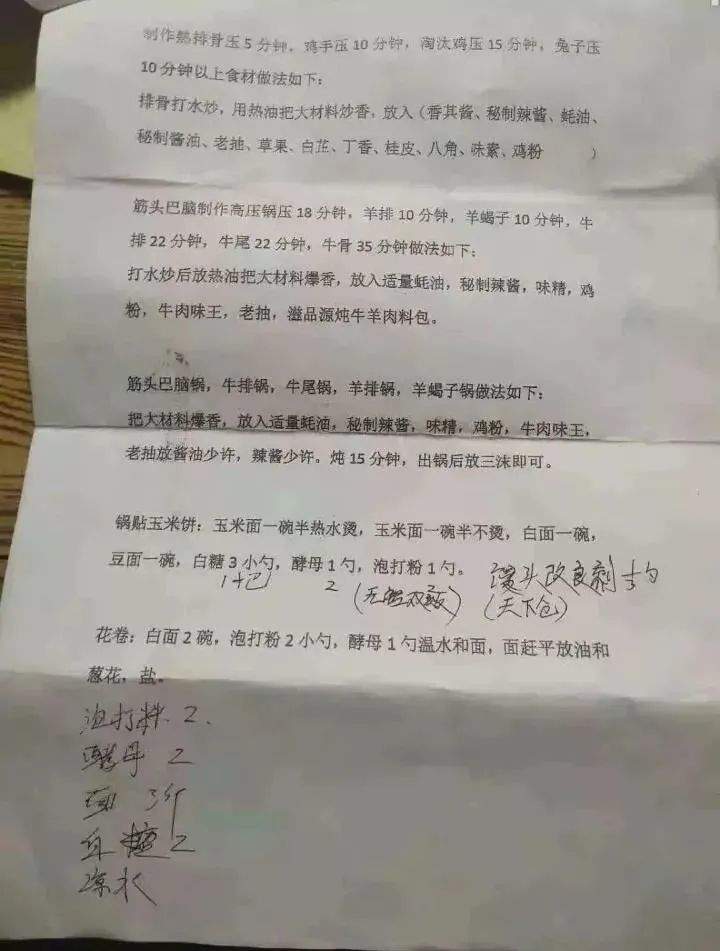 制作熟排骨压5分钟，鸡手压10分钟，淘汰鸡压15分钟，兔子压
10分钟以上食材做法如下：
排骨打水炒，用热油把大材料炒香，放入（香其酱、秘制辣酱、蚝油、
秘制酱油、老抽、草果、白芷、丁香、桂皮、八角、味素、鸡粉 ）
筋头巴脑制作高压锅压18分钟，羊排10分钟，羊蝎子10分钟，牛
排22分钟，牛尾22分钟，牛骨35分钟做法如下：
打水炒后放热油把大材料爆香，放入适量蚝油，秘制辣酱，味精，鸡
粉，牛肉味王，老抽，溢品源炖牛羊肉料包。
筋头巴脑锅，牛排锅，牛尾锅，羊排锅，羊蝎子锅做法如下：
把大材料爆香，放入适量蚝油，秘制辣酱，味精，鸡粉，牛肉味王，
老抽放酱油少许，辣酱少许。炖15分钟，出锅后放三沫即可。
锅贴玉米饼：玉米面一碗半热水烫，玉米面一碗半不烫，白面一碗，
豆面一碗，白糖3小勺，酵母1勺，泡打粉1勺。 馒头改良剂
2 (天下仓)
花卷：白面2碗，泡打粉2小勺，酵母1勺温水和面，面赶平放油和
葱花，盐。
泡打粉 2.
酵母 2
面 3斤
白糖 2
凉水